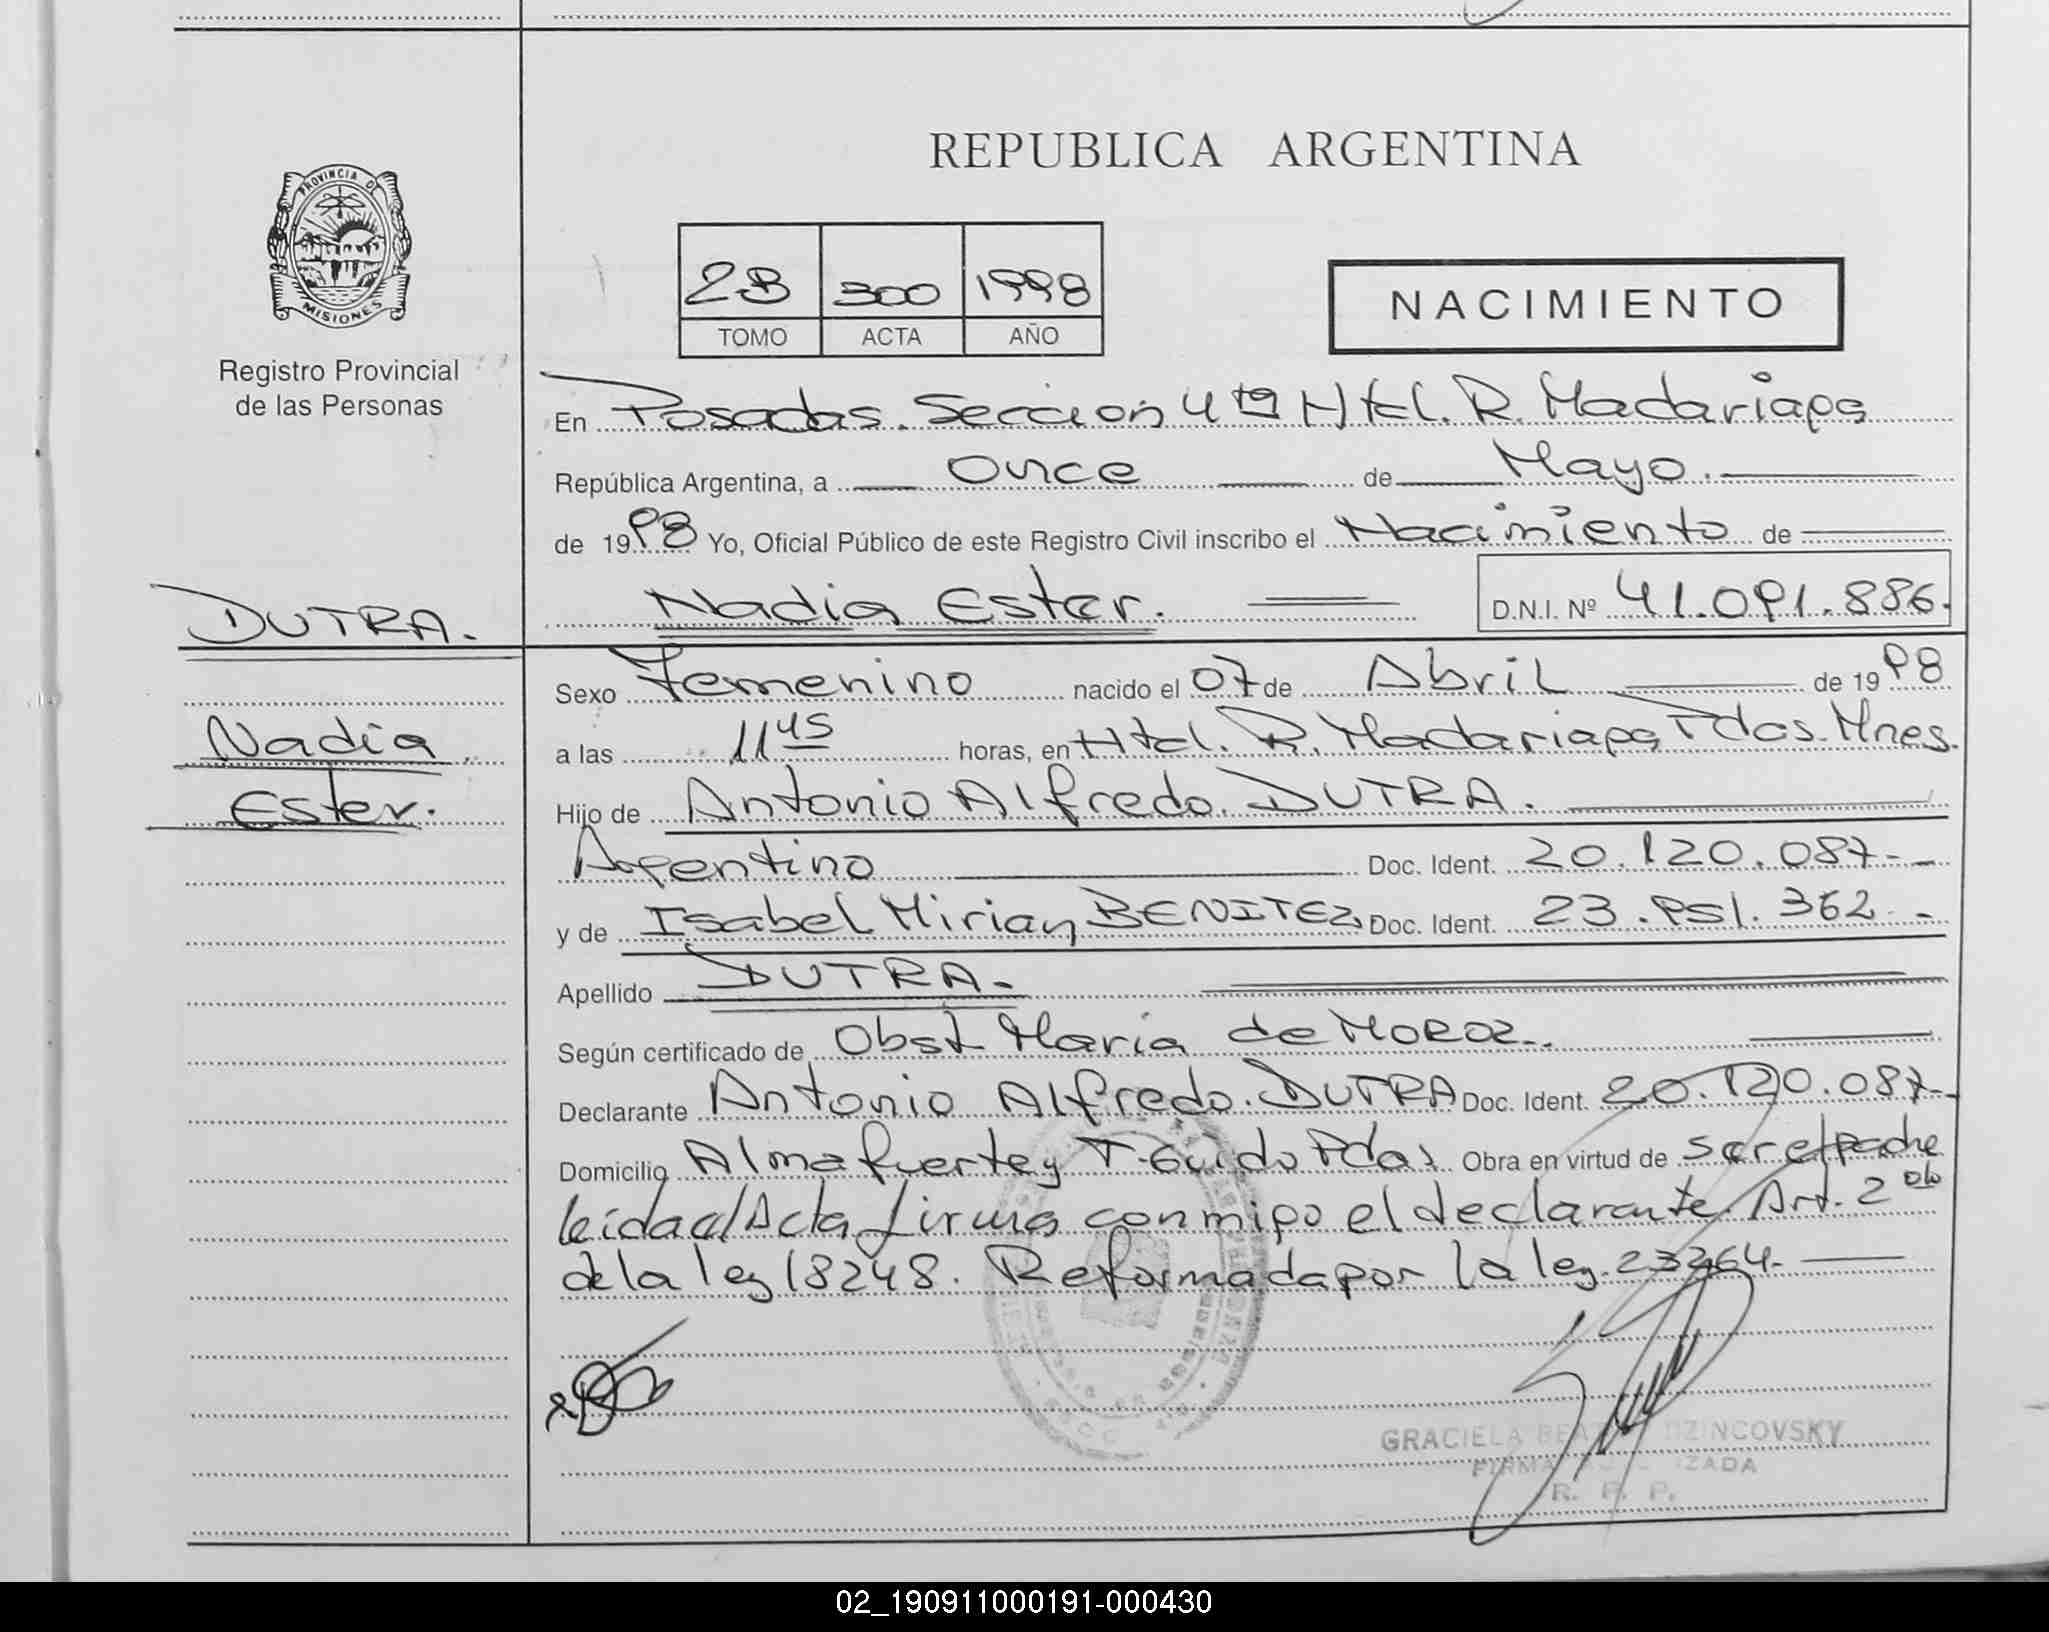 REPUBLICA ARGENTINA
PROVINCIA DE
MISIONES
Registro Provincial
de las Personas
2B 300 1998
TOMO ACTA AÑO
NACIMIENTO
En Posadas. Seccion 4ta Htal. R. Madariaga
República Argentina, a Once de Mayo.
de 1998 Yo, Oficial Público de este Registro Civil inscribo el Nacimiento de
Nadia Ester. D.N.I. Nº 41.091.886.
DUTRA.
Nadia
Ester.
Sexo Femenino nacido el 07 de Abril de 1998
a las 11 45 horas, en Htal. R. Madariaga Pdas. Mnes.
Hijo de Antonio Alfredo. DUTRA.
Argentino Doc. Ident. 20.120.087.-
y de Isabel Mirian BENITEZ Doc. Ident. 23.951.362.-
Apellido DUTRA.
Según certificado de Obst. Maria de MOROZ..
Declarante Antonio Alfredo. DUTRA Doc. Ident. 20.120.087.-
Domicilio Almafuerte y T. Guido Pdas. Obra en virtud de ser el padre
leida el Acta firma conmigo el declarante. Art. 2
de la ley 18248. Reformada por la ley. 23264.
GRACIELA DZINCOVSKY
FIRMA
R. P. P.
02_190911000191-000430